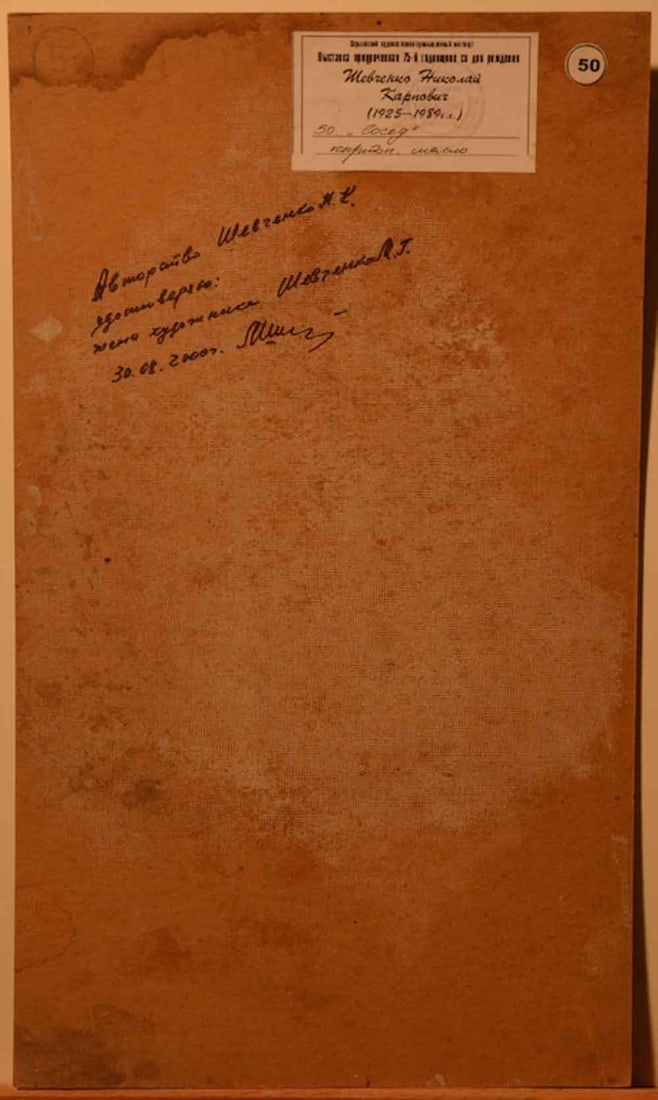 Харьковский художественно-промышленный институт
Выставка приуроченная 75-й годовщине со дня рождения
Шевченко Николай
Карпович
(1925—1989г.г.)
50. „Сосед"
картон. масло
50
Авторство Шевченко Н.К.
удостоверяю:
жена художника Шевченко М.Г.
30.08.2000г.